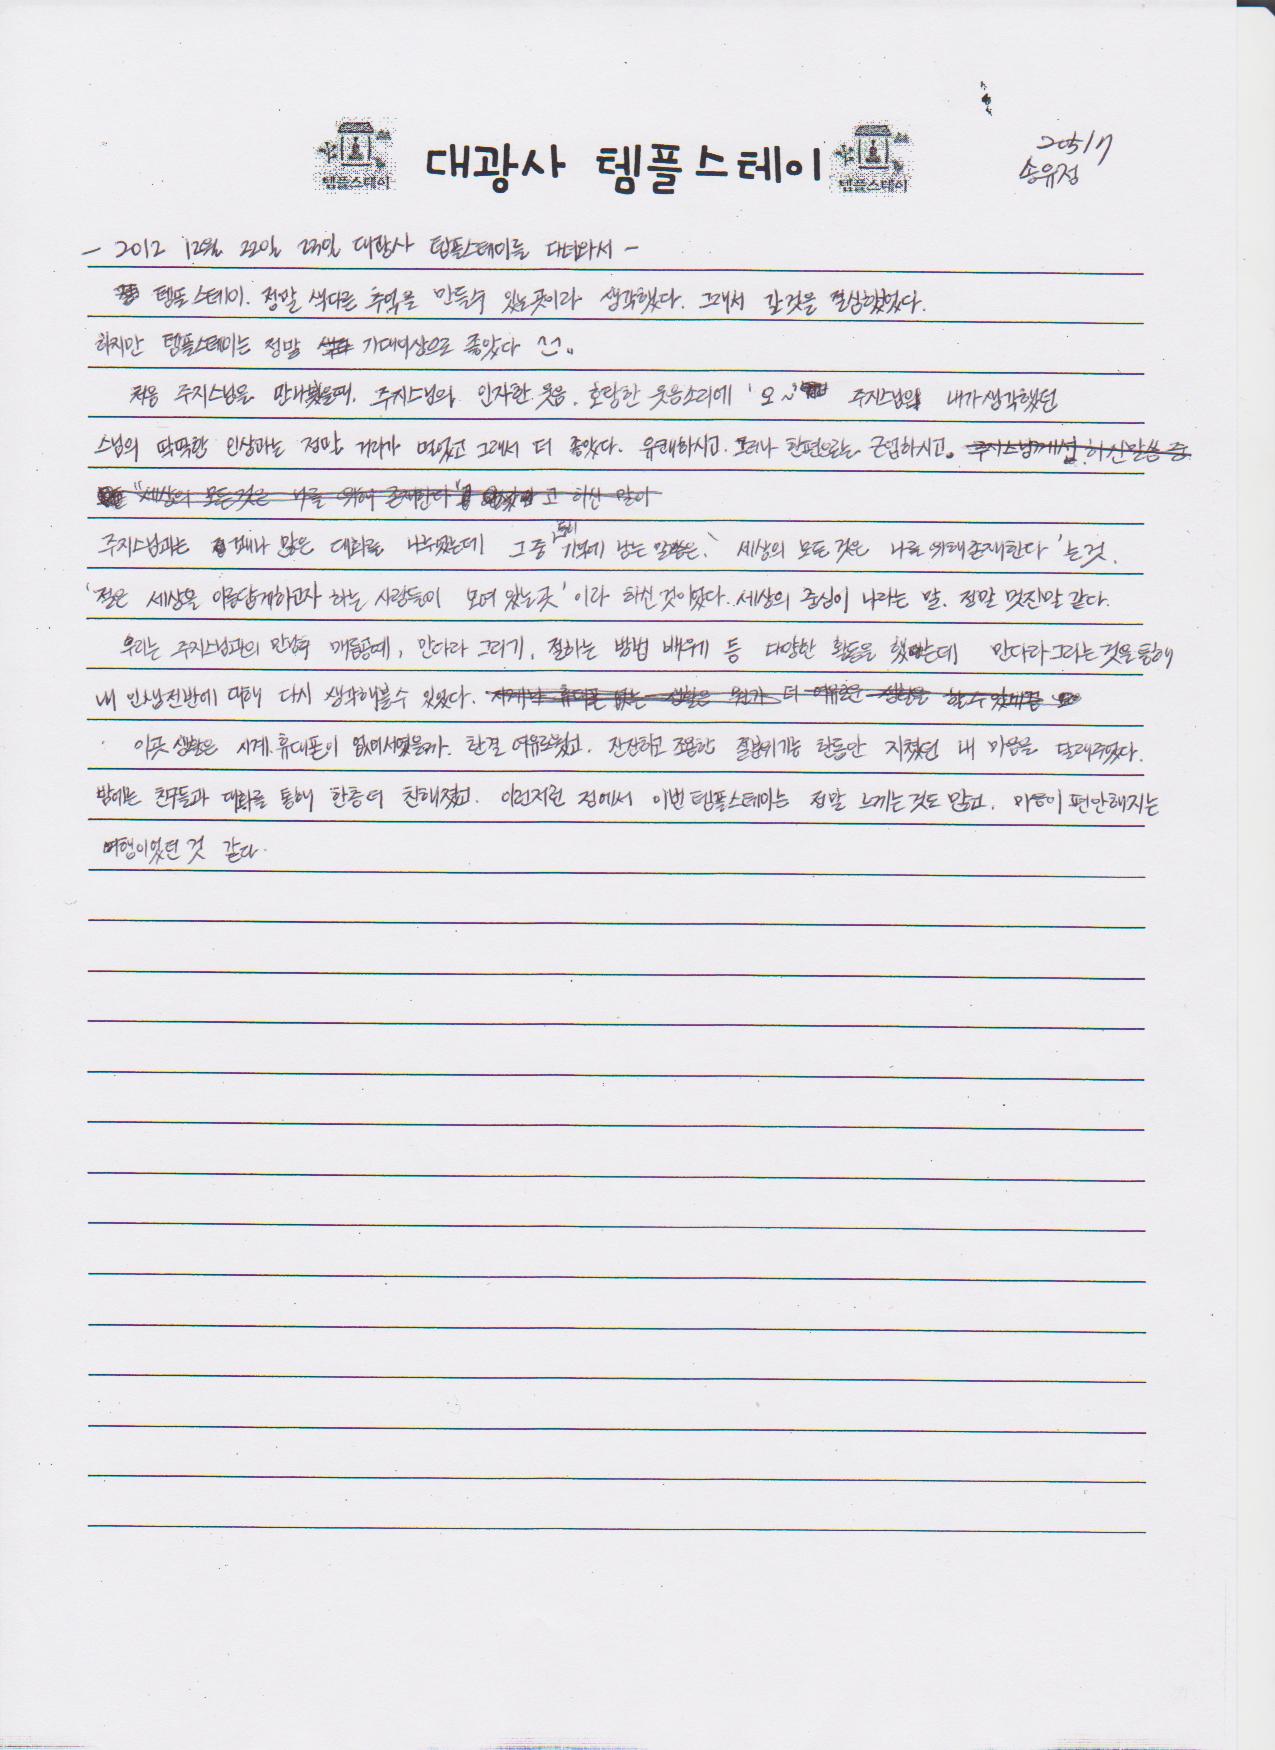 템플스테이 대광사 템플스테이 템플스테이
20517
송유정
- 2012 12월 22일 23일 대광사 템플스테이를 다녀와서 -
템플스테이. 정말 색다른 추억을 만들수 있는곳이라 생각했다. 그래서 갈것을 결심했었다.
하지만 템플스테이는 정말 기대이상으로 좋았다 ^^.
처음 주지스님을 만나뵜을때, 주지스님의 인자한 웃음, 호탕한 웃음소리에 '오~' 주지스님의 내가생각했던
스님의 딱딱한 인상과는 정말 거리가 멀었고 그래서 더 좋았다. 유쾌하시고. 그러나 한편으로는 근엄하시고. 주지스님께서 하신말씀 중
"세상의 모든것은 나를 위해 존재한다" 고 하신 말이
주지스님과는 꽤나 많은 대화를 나누었는데 그 중 특히 기억에 남는 말씀은, '세상의 모든 것은 나를 위해 존재한다'는것,
'절은 세상을 아름답게하고자 하는 사람들이 모여 있는 곳' 이라 하신 것이었다. 세상의 중심이 나라는 말, 정말 멋진말 같다.
우리는 주지스님과의 만남후 매듭공예, 만다라 그리기, 절하는 방법 배우기 등 다양한 활동을 했는데 만다라그리는 것을 통해
내 인생전반에 대해 다시 생각해볼수 있었다. 시계나 휴대폰 없는 생활은 뭔가 더 여유로운 생활을 할수있게끔
이곳 생활은 시계. 휴대폰이 없어서였을까. 한결 여유로웠고. 잔잔하고 조용한 절분위기는 한동안 지쳤던 내 마음을 달래주었다.
밤에는 친구들과 대화를 통해 한층더 친해졌고. 이런저런 점에서 이번 템플스테이는 정말 느끼는것도 많고, 마음이 편안해지는
여행이었던 것 같다.